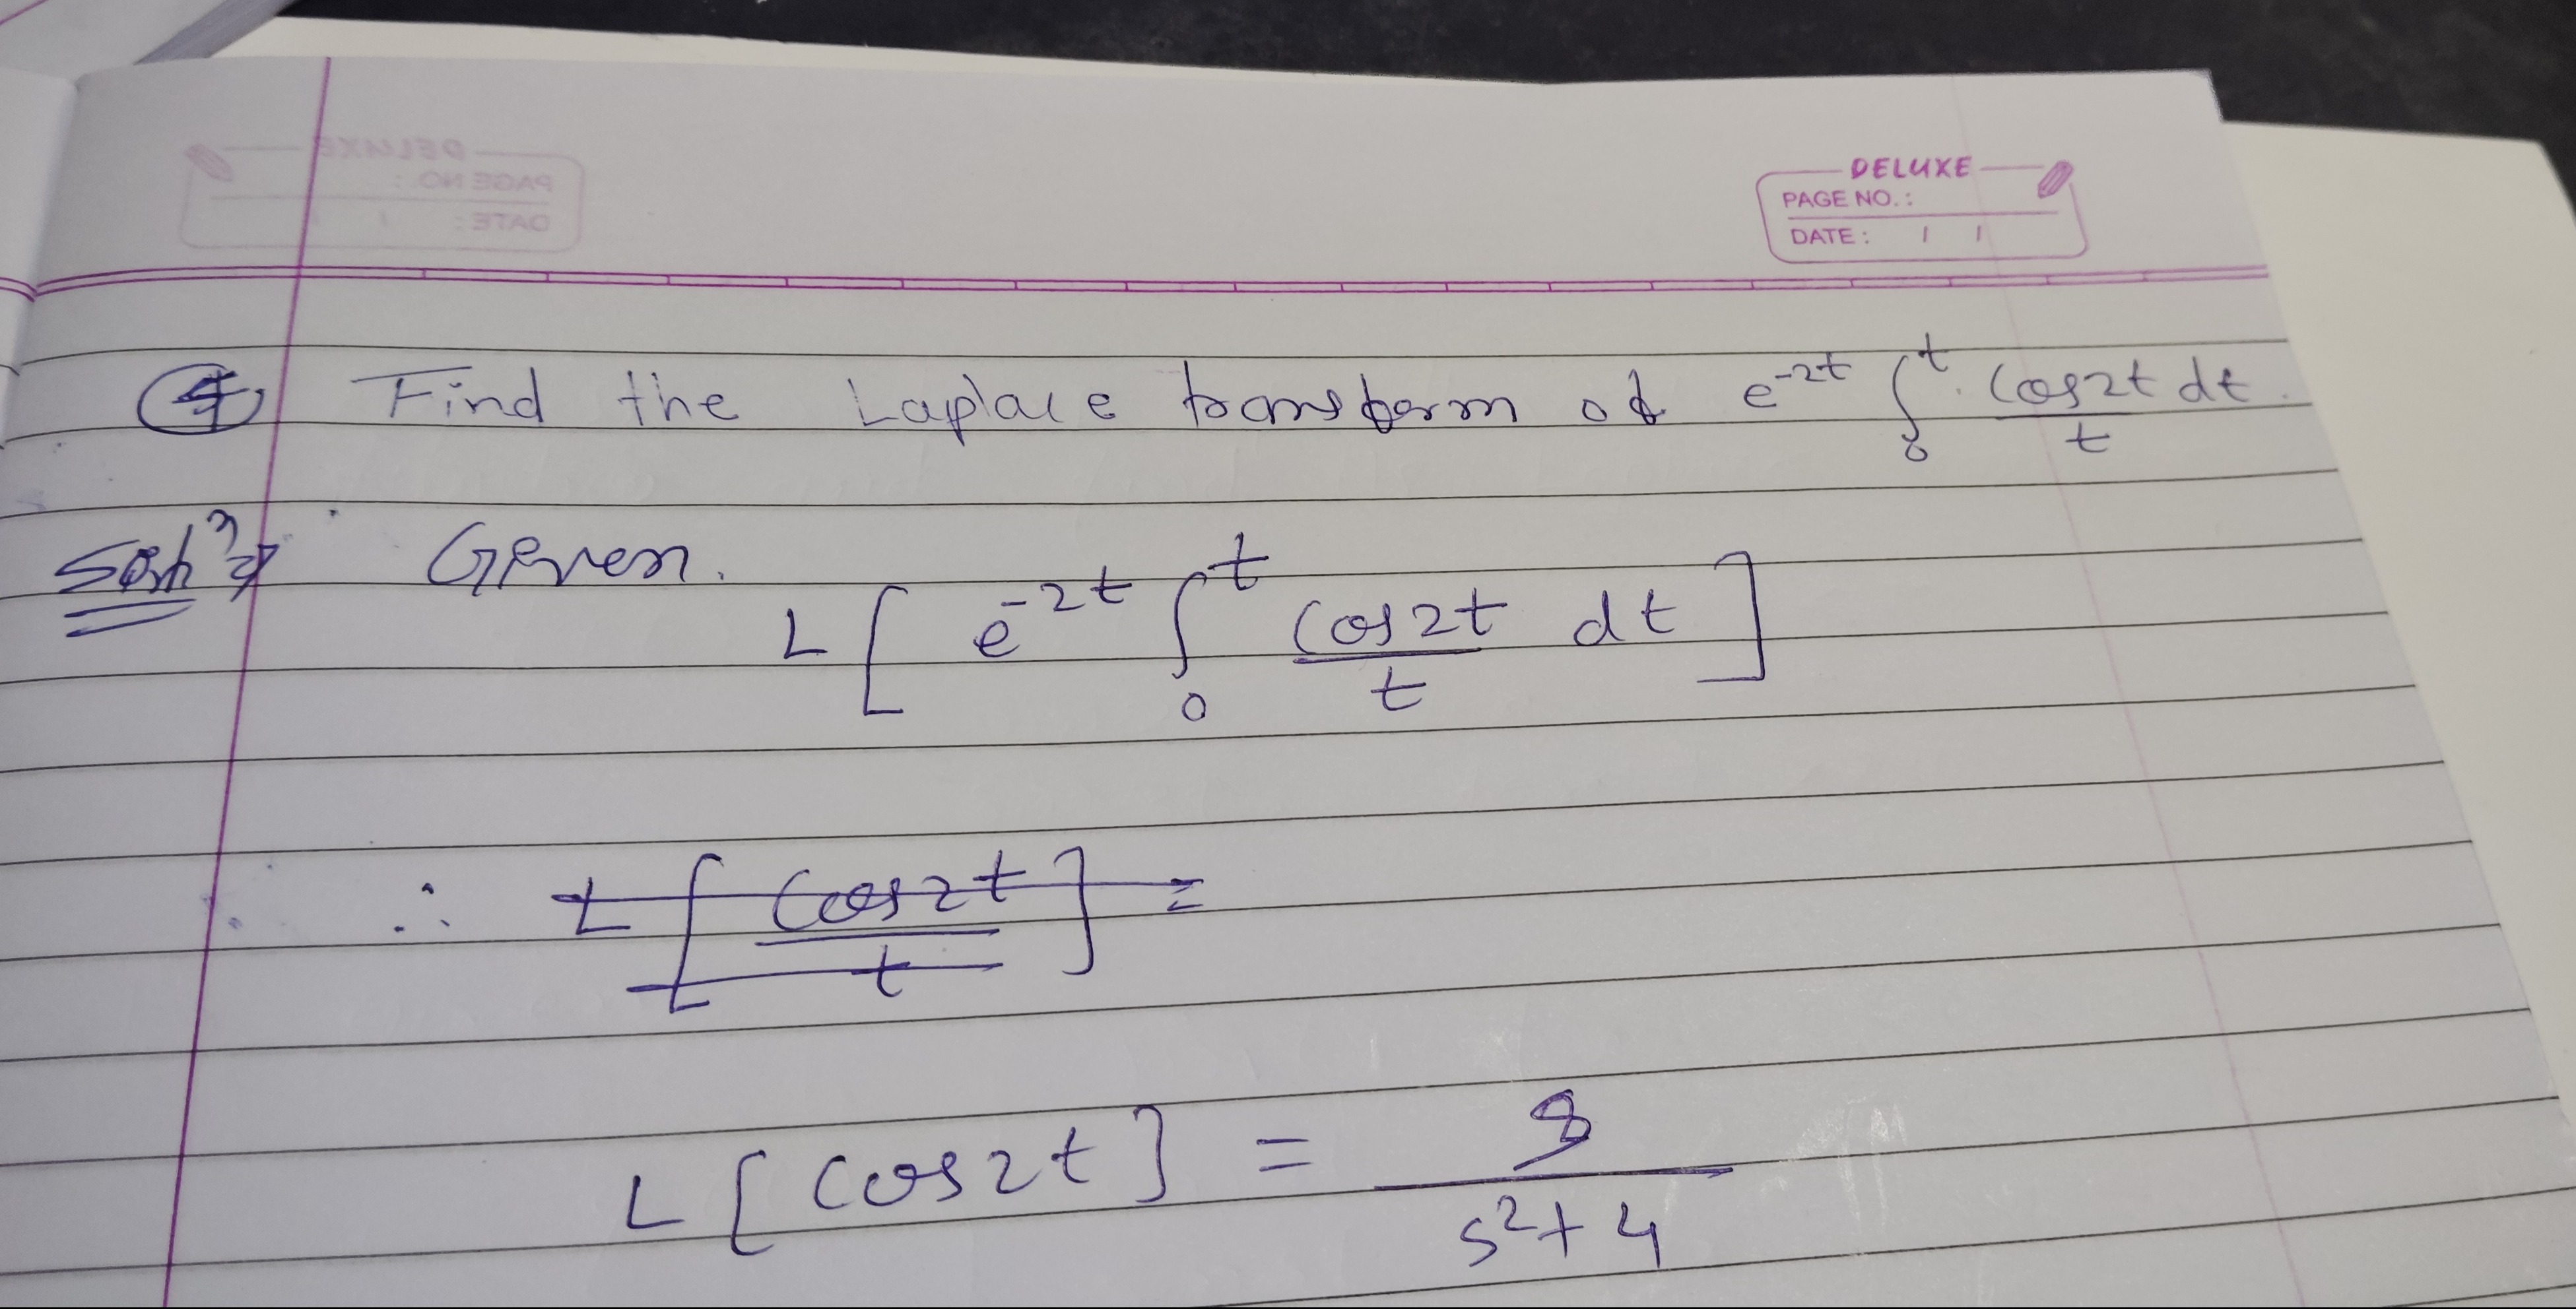 DELUXE
PAGE NO. :
DATE : / /
④ Find the Laplace transform of e^{-2t} ∫₀^t cos2t/t dt.
Soln ⇒ Given.
L[ e^{-2t} ∫₀^t cos2t/t dt ]
∴ L[ cos2t/t ] =
L[cos2t] = s/(s²+4)